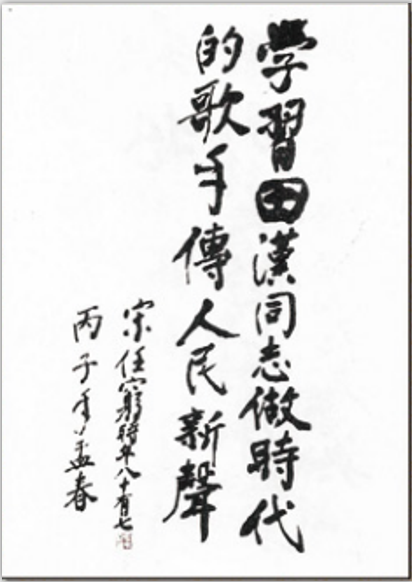 學習田漢同志做時代
的歌手傳人民新聲
宋任窮時年八十有七
丙子年孟春